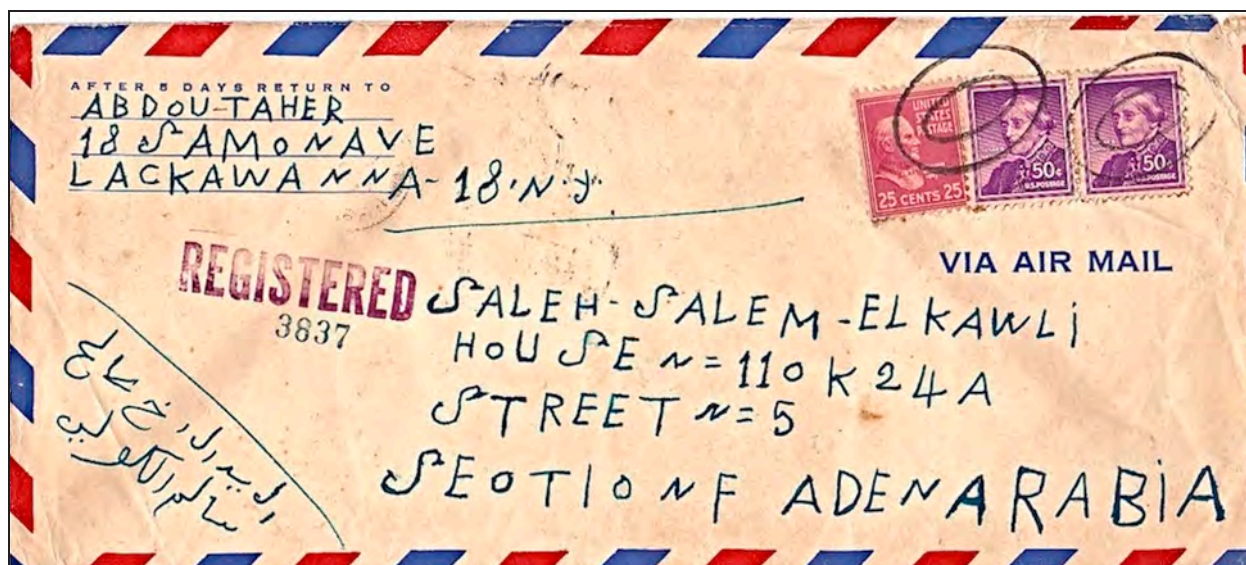 AFTER 5 DAYS RETURN TO
ABDOU-TAHER
18 SAMONAVE
LACKAWANNA-18.N.Y.
UNITED
STATES
POSTAGE
25 CENTS 25
50¢
U.S. POSTAGE
50¢
U.S. POSTAGE
VIA AIR MAIL
REGISTERED
3837
SALEH-SALEM-ELKAWLi
HOUSE N=110 K24A
STREET N=5
SEOTIONF ADENARABiA
السيد الاخ صالح
سالم الكولي